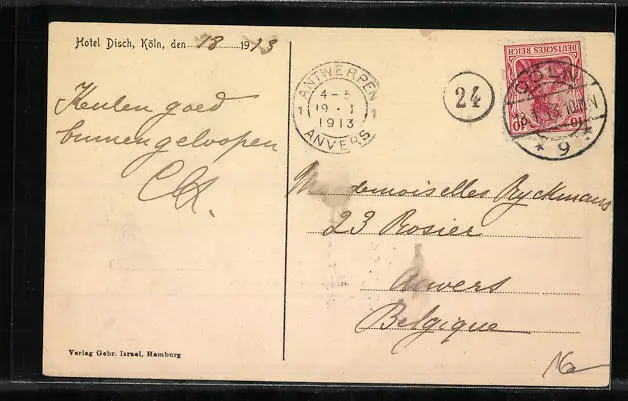 Hotel Disch, Köln, den 18 1913
Keulen goed
binnengeloopen
ANTWERPEN
4-5
1 19 · I 1
1913
ANVERS
24
DEUTSCHES REICH
10 10
CÖLN
18.1.13. 10-11 N
* 9 *
Mademoiselles Ryckmans
23 Rosier
Anvers
Belgique
Verlag Gebr. Israel, Hamburg